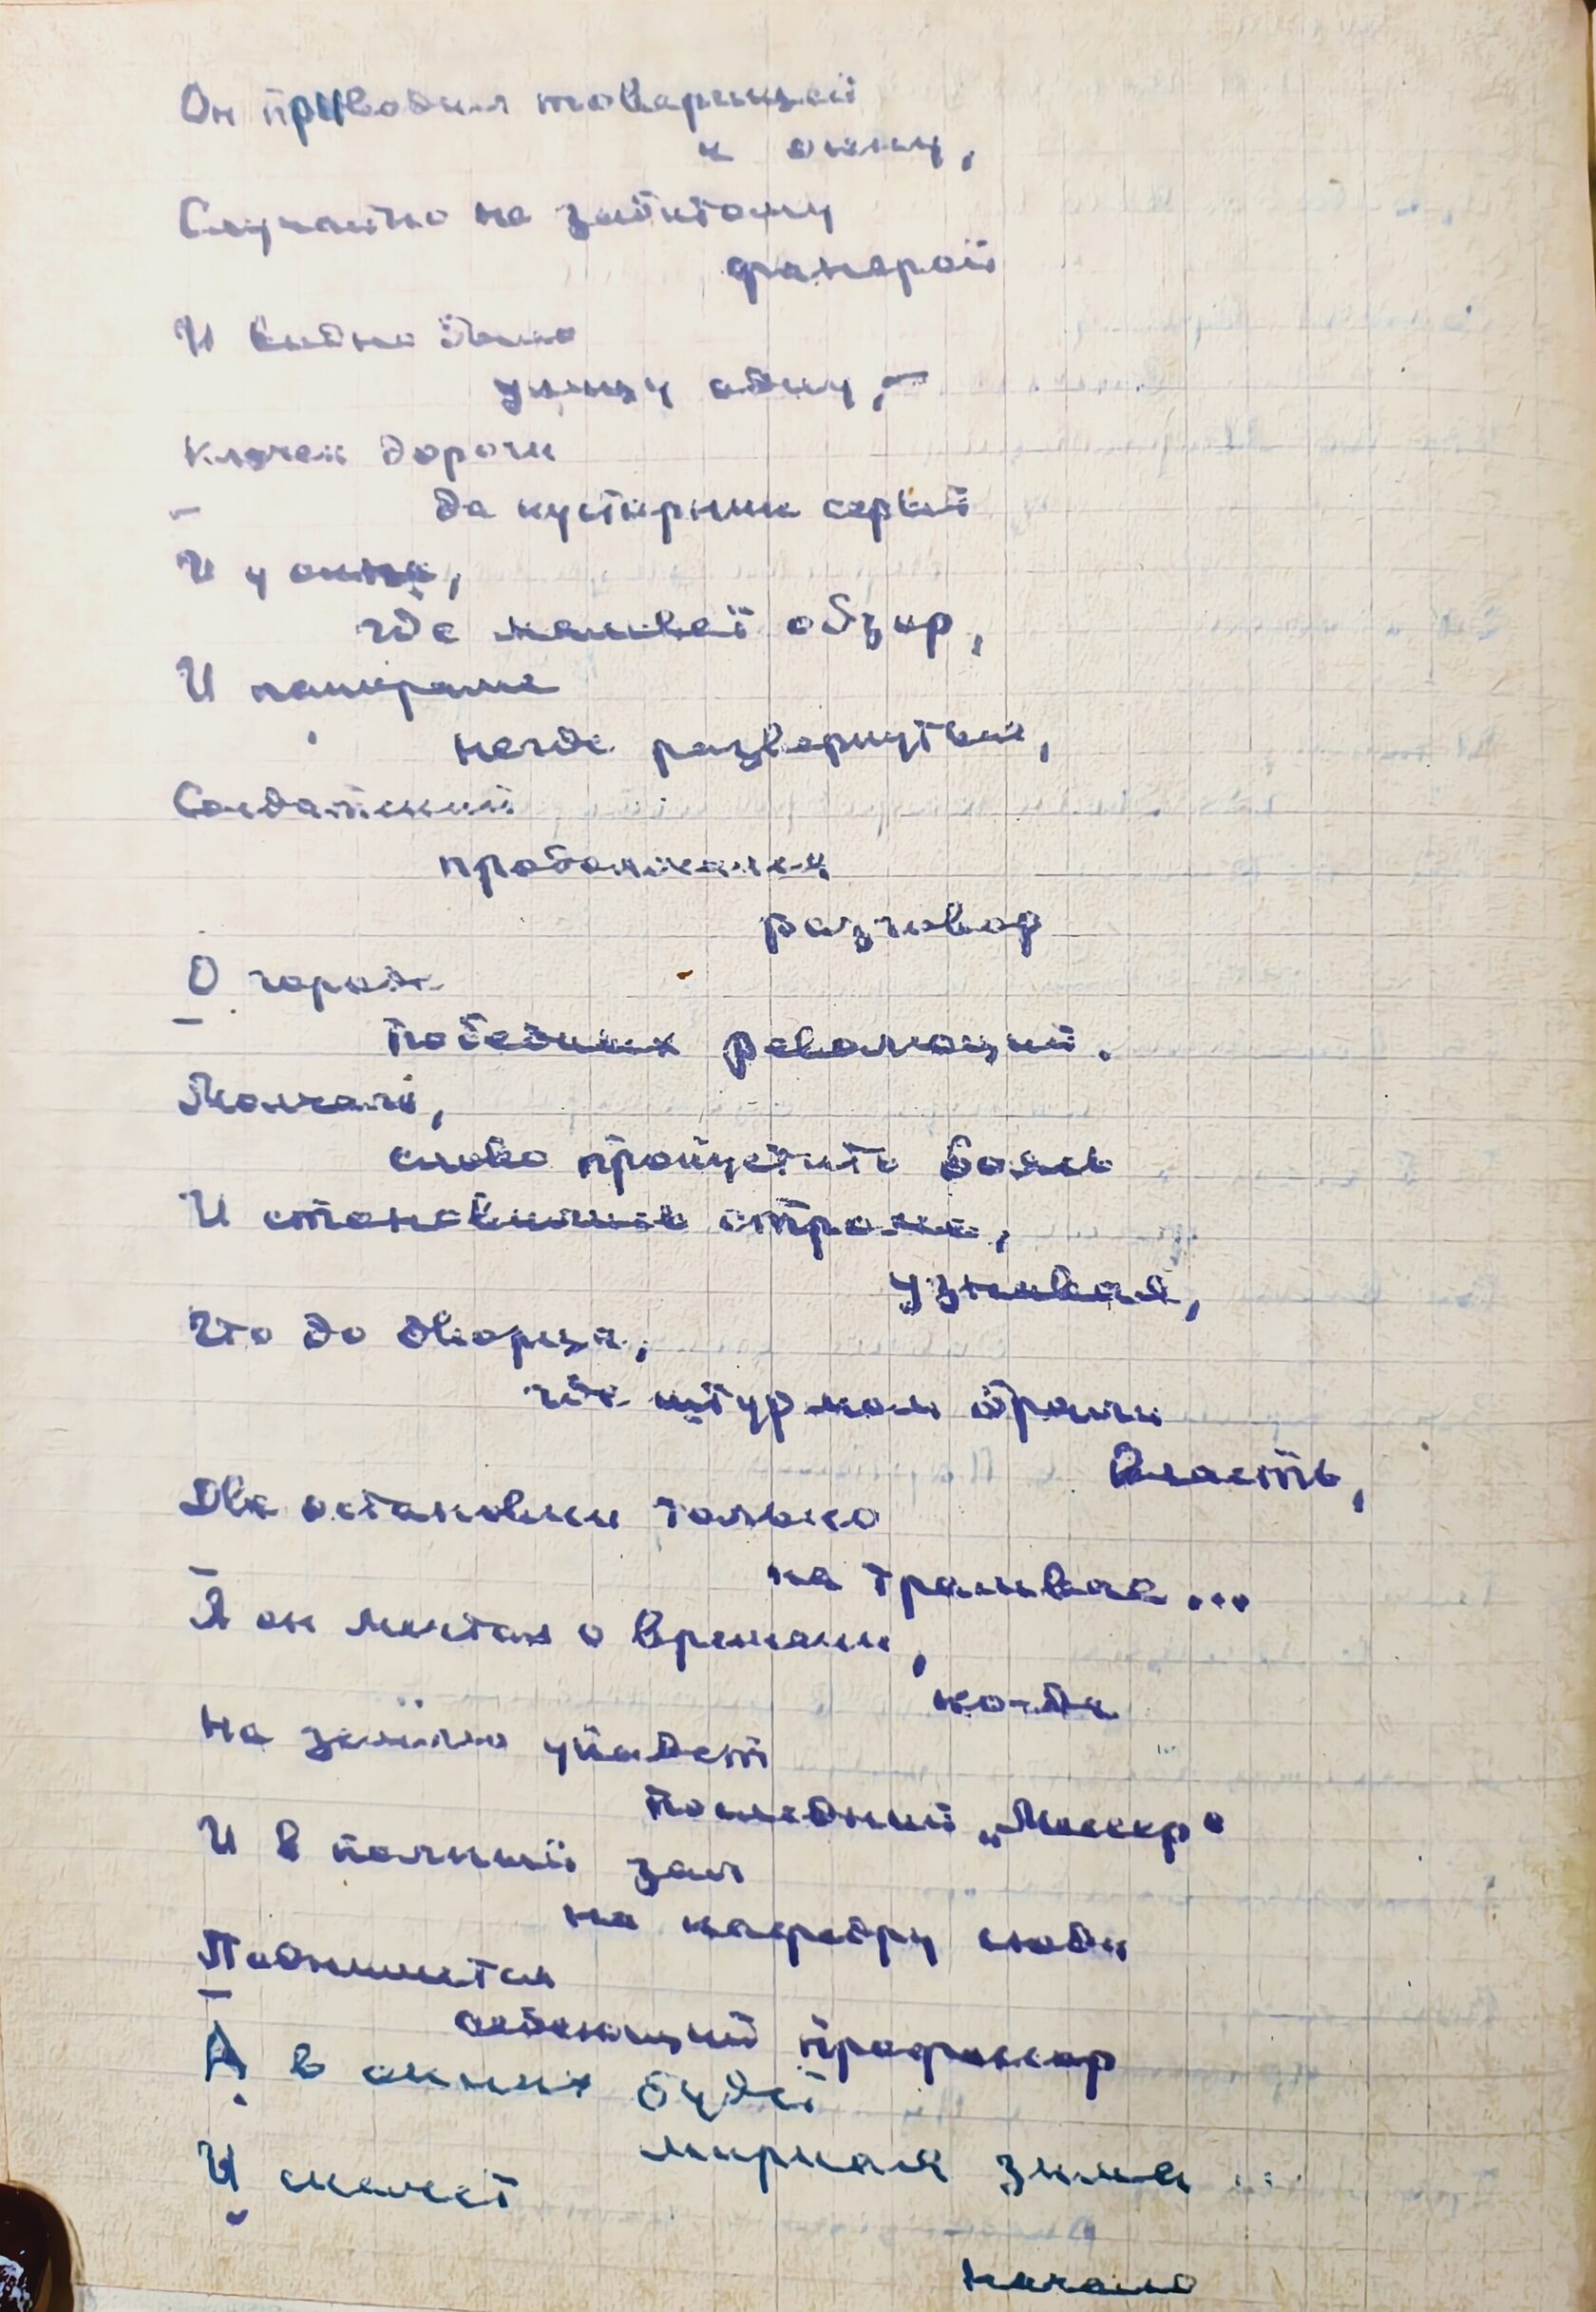 Он приводил товарищей
к окну,
Случайно не забитому
фанерой
И видно было
улицу одну, -
Клочек дороги
да кустарник серый
И у окна,
где малый обзор,
И панораме
негде развернуться,
Солдатский
продолжался
разговор
О городе
победных революций.
Молчали,
слово пропустить боясь
И становились строже,
узнавая,
Что до дворца,
где штурмом брали
власть,
Две остановки только
на трамвае...
А он мечтал о времени,
когда
На землю упадет
последний „Мессер"
И в полный зал
на кафедру сюда
Поднимется
седеющий профессор
А в окнах будет
мирная зима ...
И скажет